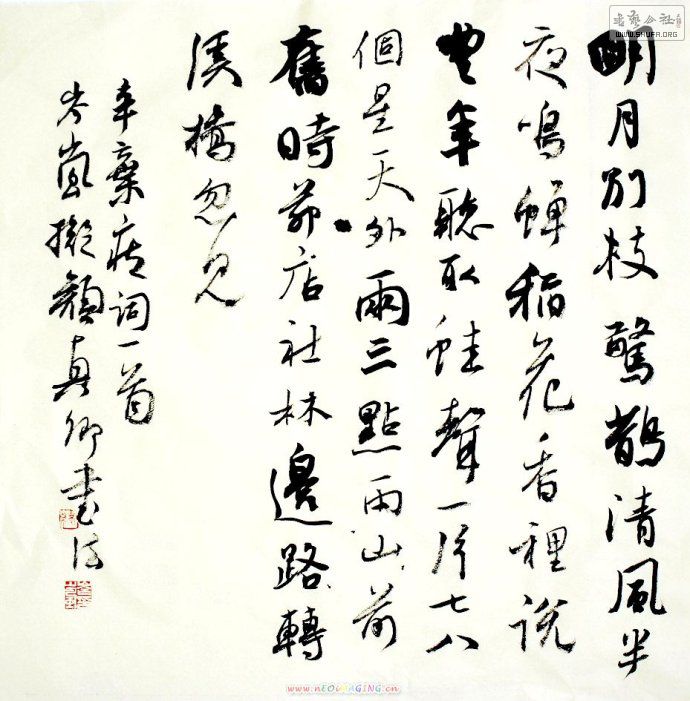 明月别枝驚鵲清風半
夜鳴蟬稻花香裡説
豐年聽取蛙聲一片七八
個星天外兩三點雨山前
舊時茆店社林邊路轉
溪橋忽見
辛棄疾詞一首
岑嵐擬顔真卿書法
書藝公社
WWW.SHUFA.ORG
www.nEOiMAGING.cn